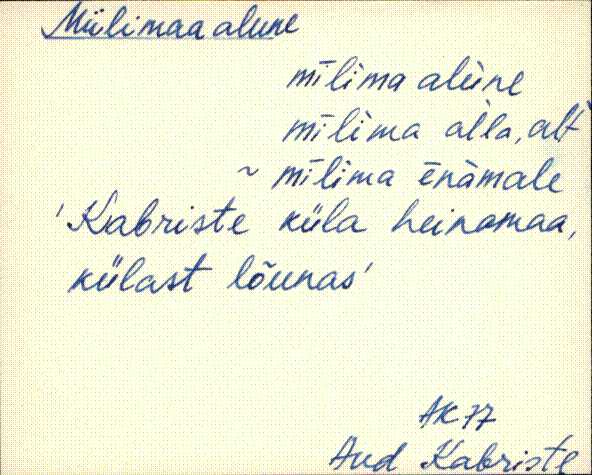 Miilimaa alune
mīlima alùne
mīlima alla, alt
~ mīlima ēnämale
'Kabriste küla heinamaa,
külast lõunas'
AK 77
Aud Kabriste